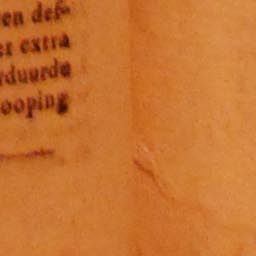 en def-
er extra
rduurde
ooping